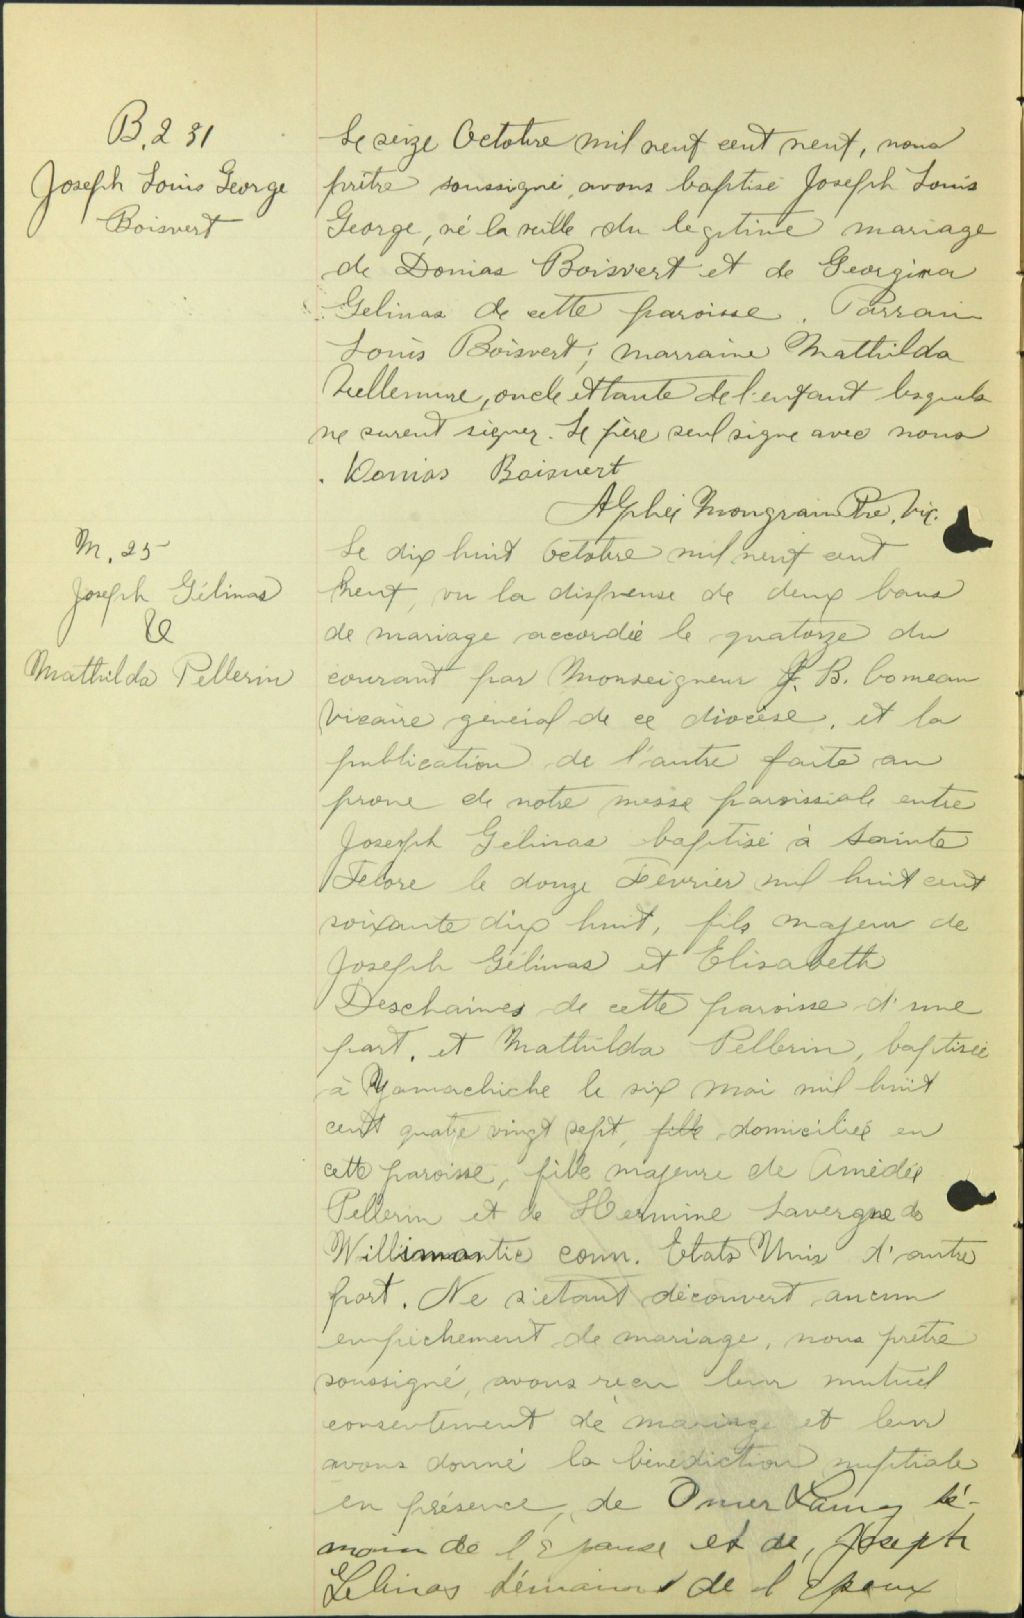 B. 231
Joseph Louis George
Boisvert
Le seize Octobre mil neuf cent neuf, nous
prêtre soussigné, avons baptisé Joseph Louis
George, né la veille du legitime mariage
de Donias Boisvert et de Georgina
Gelinas de cette paroisse. Parrain
Louis Boisvert; marraine Mathilda
oncle et tante de l'enfant lesquels
ne surent signer. Le père seul signe avec nous
Donias Boisvert
Alphée Mongrain Ptre, vic.
M. 25
Joseph Gélinas
&
Mathilda Pellerin
Le dix huit Octobre mil neuf cent
neuf, vu la dispense de deux bans
de mariage accordée le quatorze du
courant par Monseigneur J. B. Comeau
vicaire général de ce diocèse, et la
publication de l'autre faite au
prone de notre messe paroissiale entre
Joseph Gelinas baptisé à Sainte
Flore le douze Fevrier mil huit cent
soixante dix huit, fils majeur de
Joseph Gélinas et Elisabeth
Deschaines de cette paroisse d'une
part, et Mathilda Pellerin, baptisée
à Yamachiche le six mai mil huit
cent quatre vingt sept, fille domiciliée en
cette paroisse, fille majeure de Amédée
Pellerin et de Hermine Lavergne de
Willimantic conn. Etats Unis d'autre
part. Ne s'étant découvert aucun
empêchement de mariage, nous prêtre
soussigné, avons reçu leur mutuel
consentement de mariage et leur
avons donné la bénédiction nuptiale
en présence, de Omer Lamy té-
moin de l'Epouse et de, Joseph
Gelinas témoin de l'Epoux